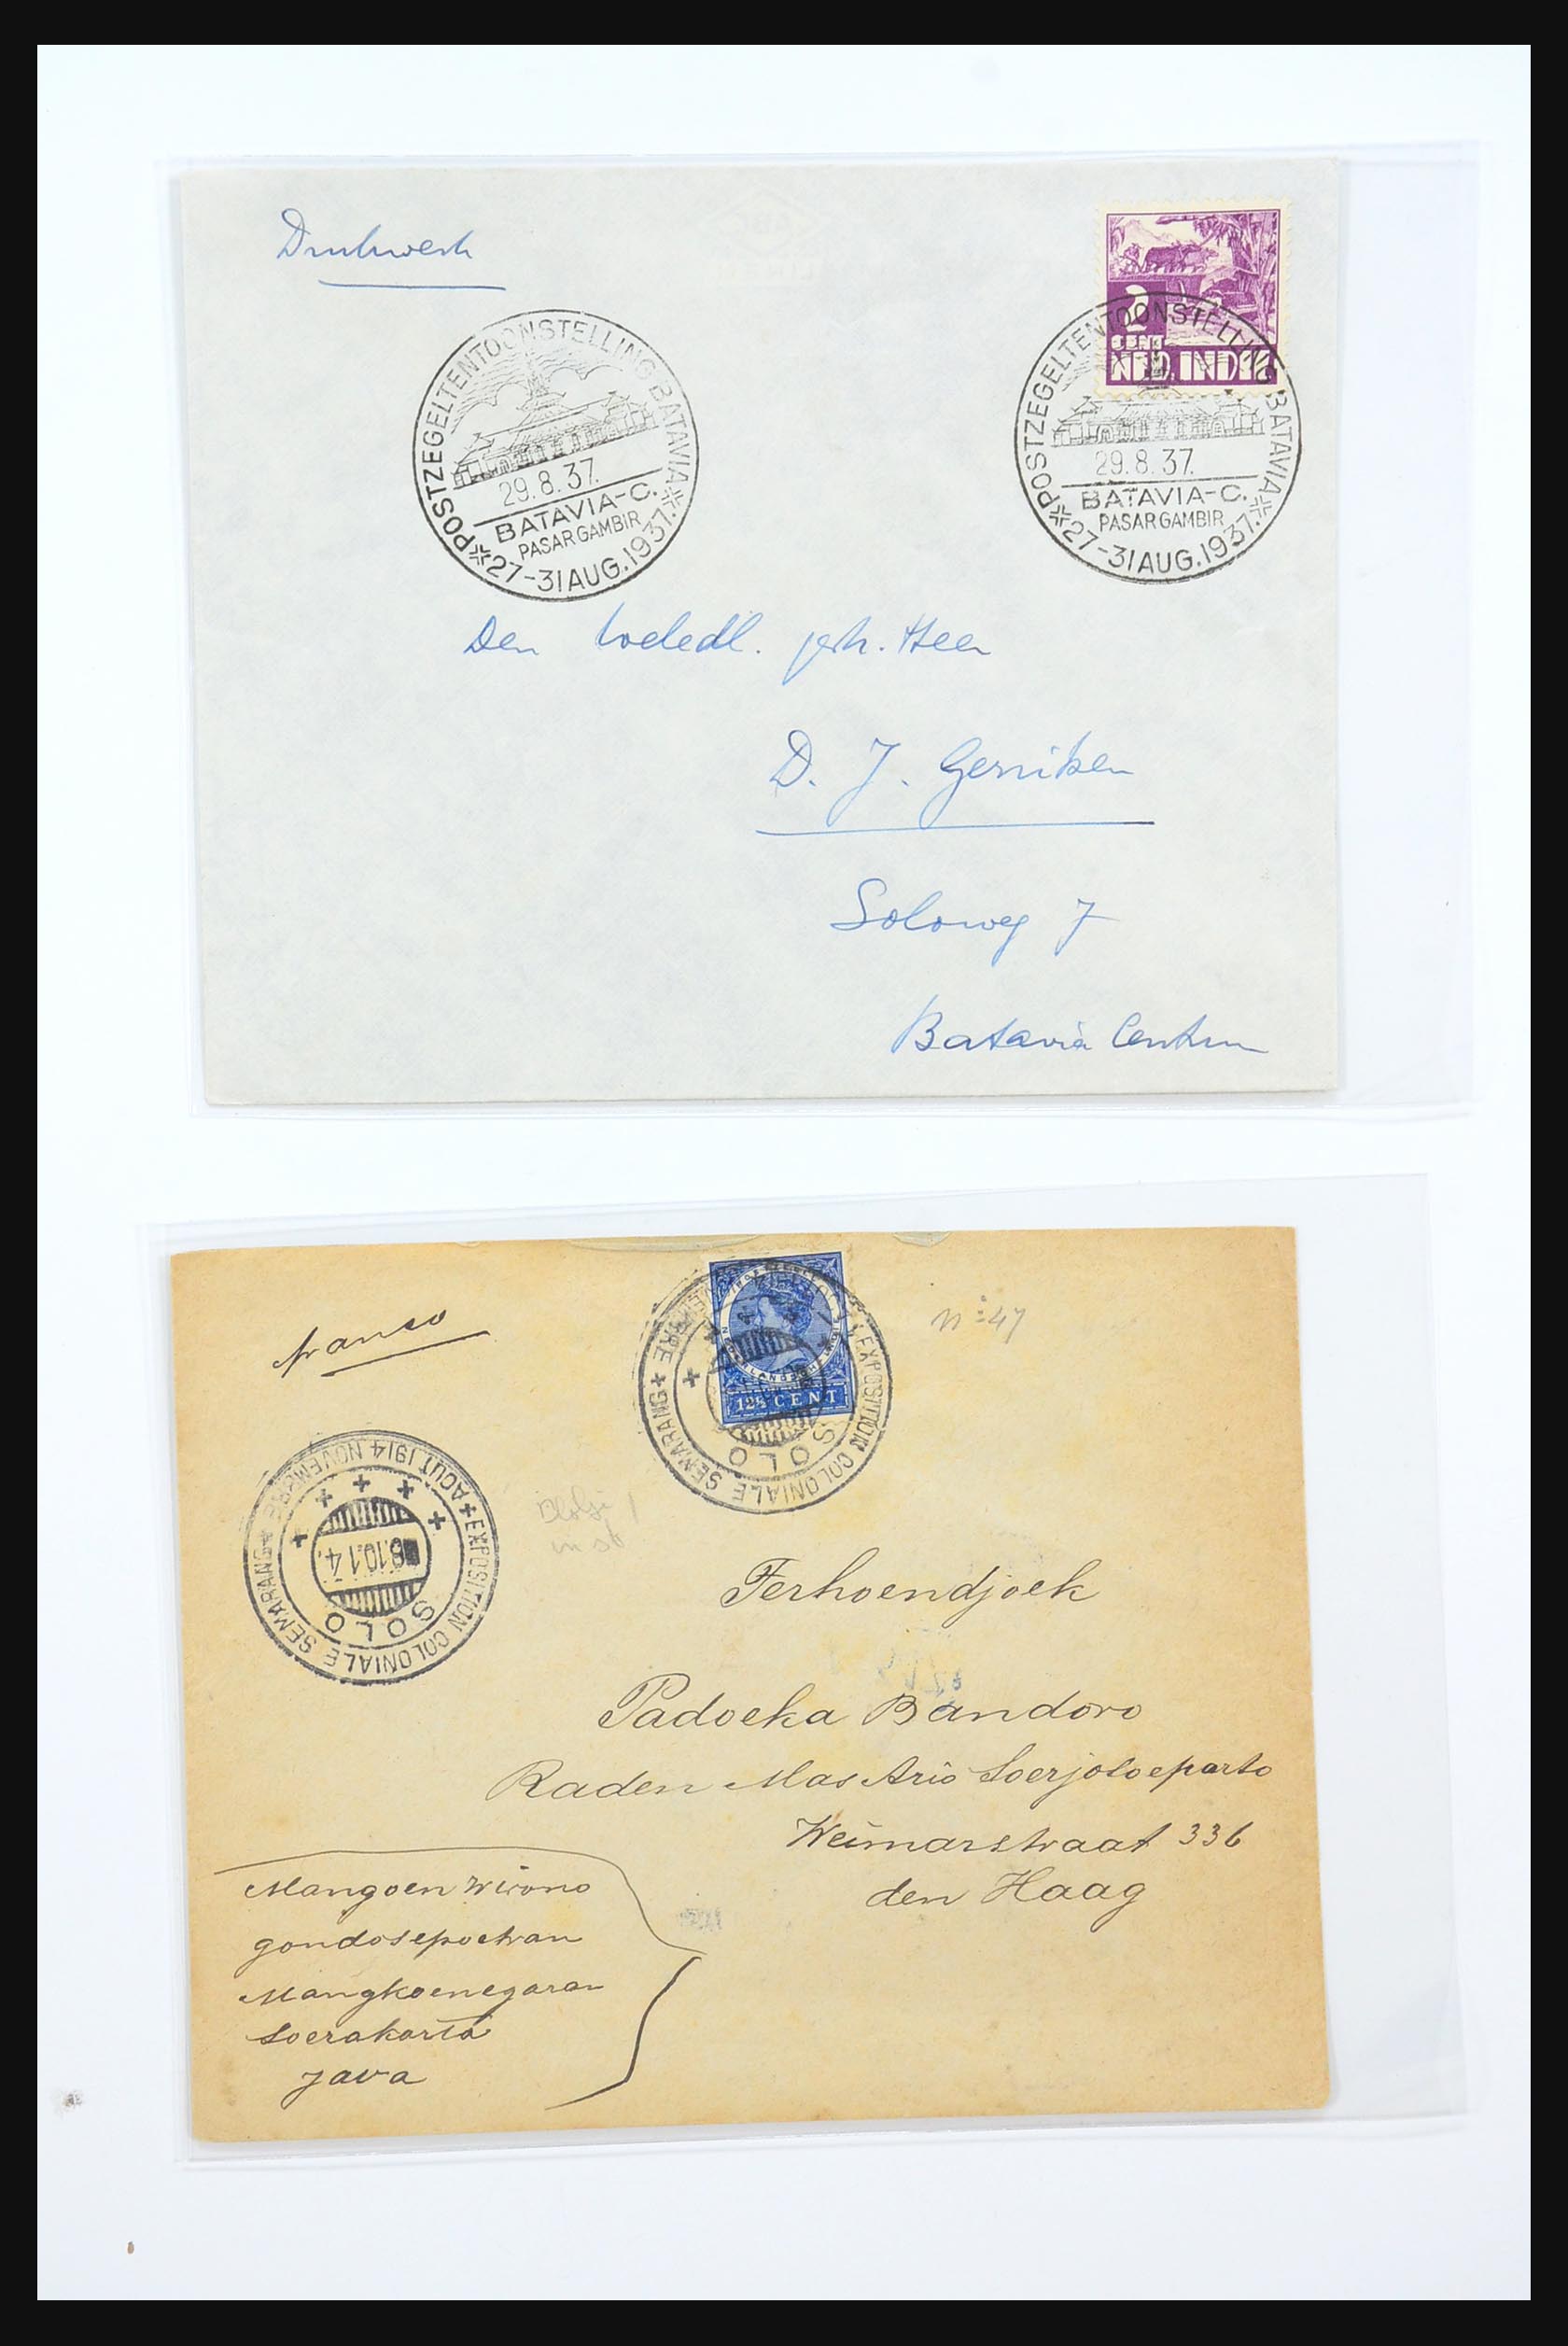 Drukwerk
2
CENT
NED. INDIË
POSTZEGELTENTOONSTELLING BATAVIA
29.8.37.
BATAVIA-C.
PASAR GAMBIR
27-31 AUG. 1937.
POSTZEGELTENTOONSTELLING BATAVIA
29.8.37.
BATAVIA-C.
PASAR GAMBIR
27-31 AUG. 1937.
Den Weledl. gesh. Heer
D. J. Gerniken
Soloweg 7
Batavia Centrum
franco
12½ CENT
EXPOSITION COLONIALE SEMARANG
SOLO
No 47
EXPOSITION COLONIALE SEMARANG
AOUT. 1914 NOVEMBRE
8.10.14.
SOLO
Terhoendjoek
Padoeka Bandoro
Raden Mas Ario Soerjosoeparto
Weimarstraat 336
den Haag
Mangoen Wirono
gondosepoetran
Mangkoenegaran
Soerakarta
Java